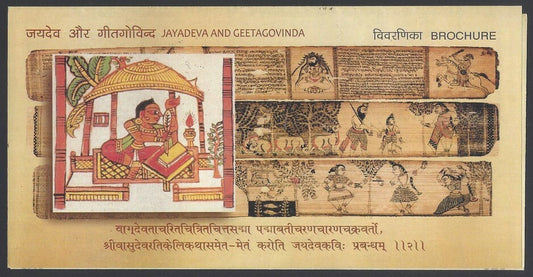 जयदेव और गीतगोविन्द JAYADEVA AND GEETAGOVINDA
विवरणिका BROCHURE
वाग्देवताचरितचित्रितचित्तसद्मा पद्मावतीचरणचारणचक्रवर्ती,
श्रीवासुदेवरतिकेलिकथासमेत-मेतं करोति जयदेवकविः प्रबन्धम् ।।२।।